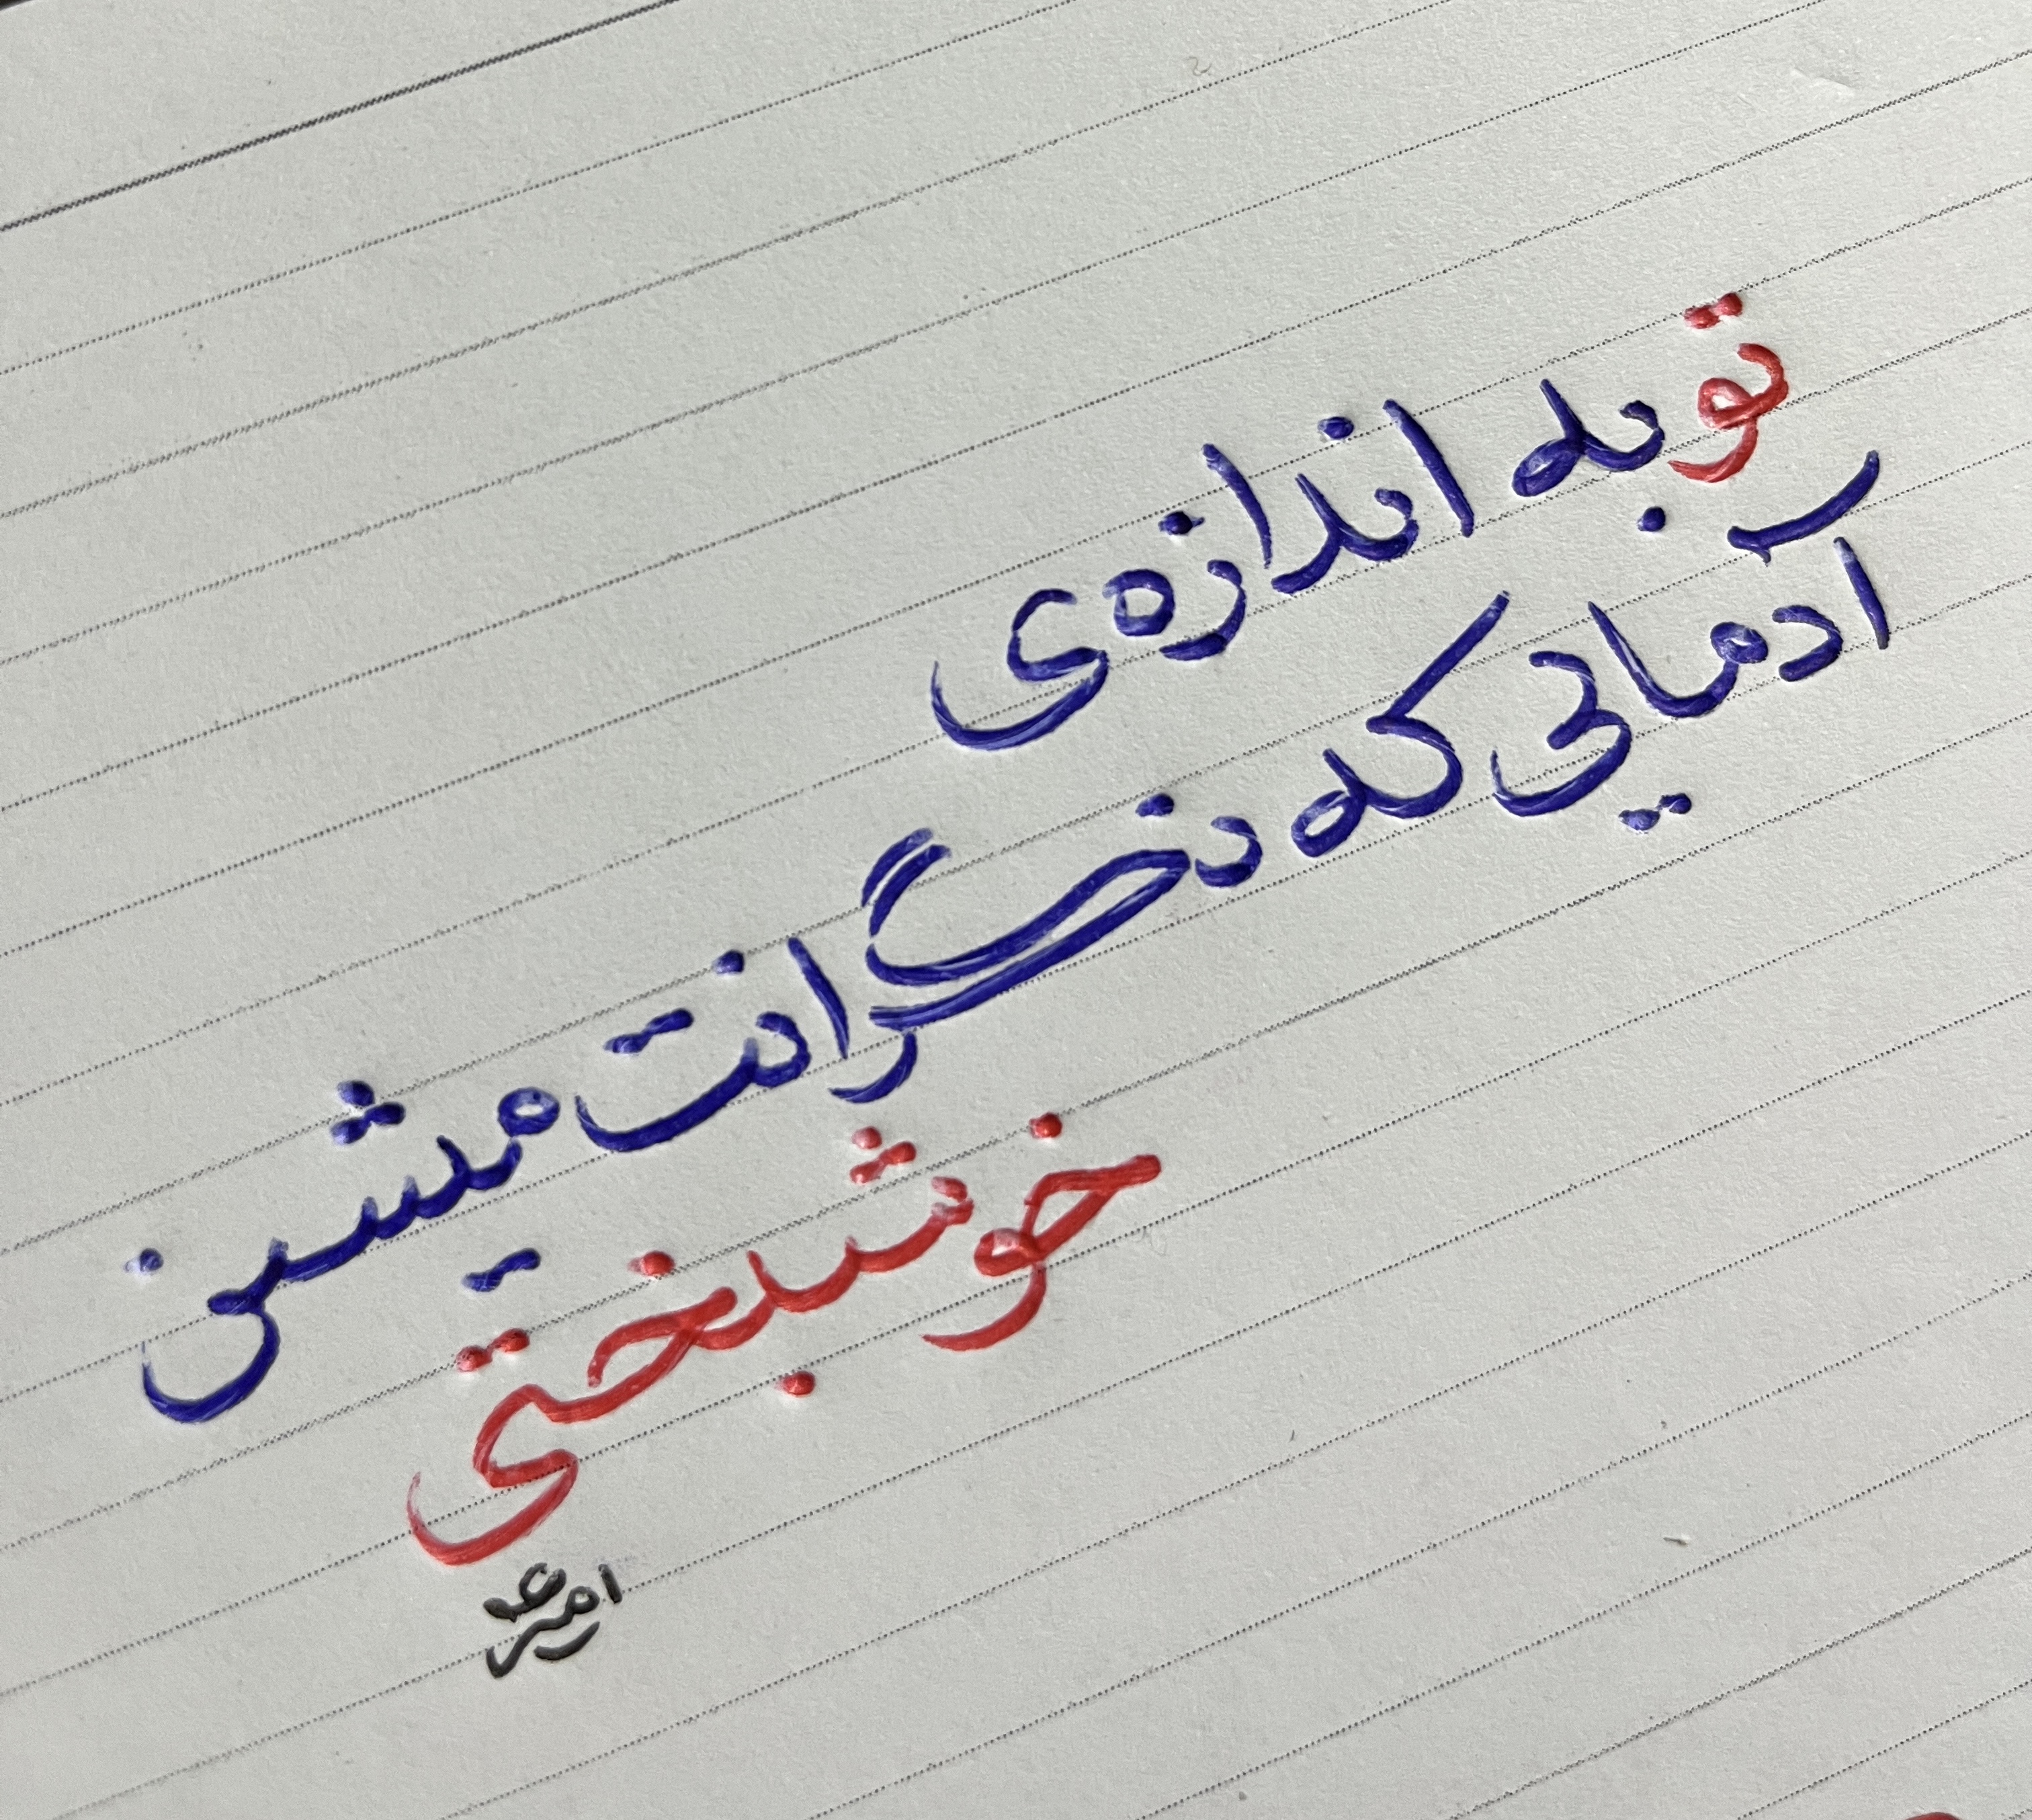 تو به اندازه‌ی
آدمایی که نگرانت میشن
خوشبختی